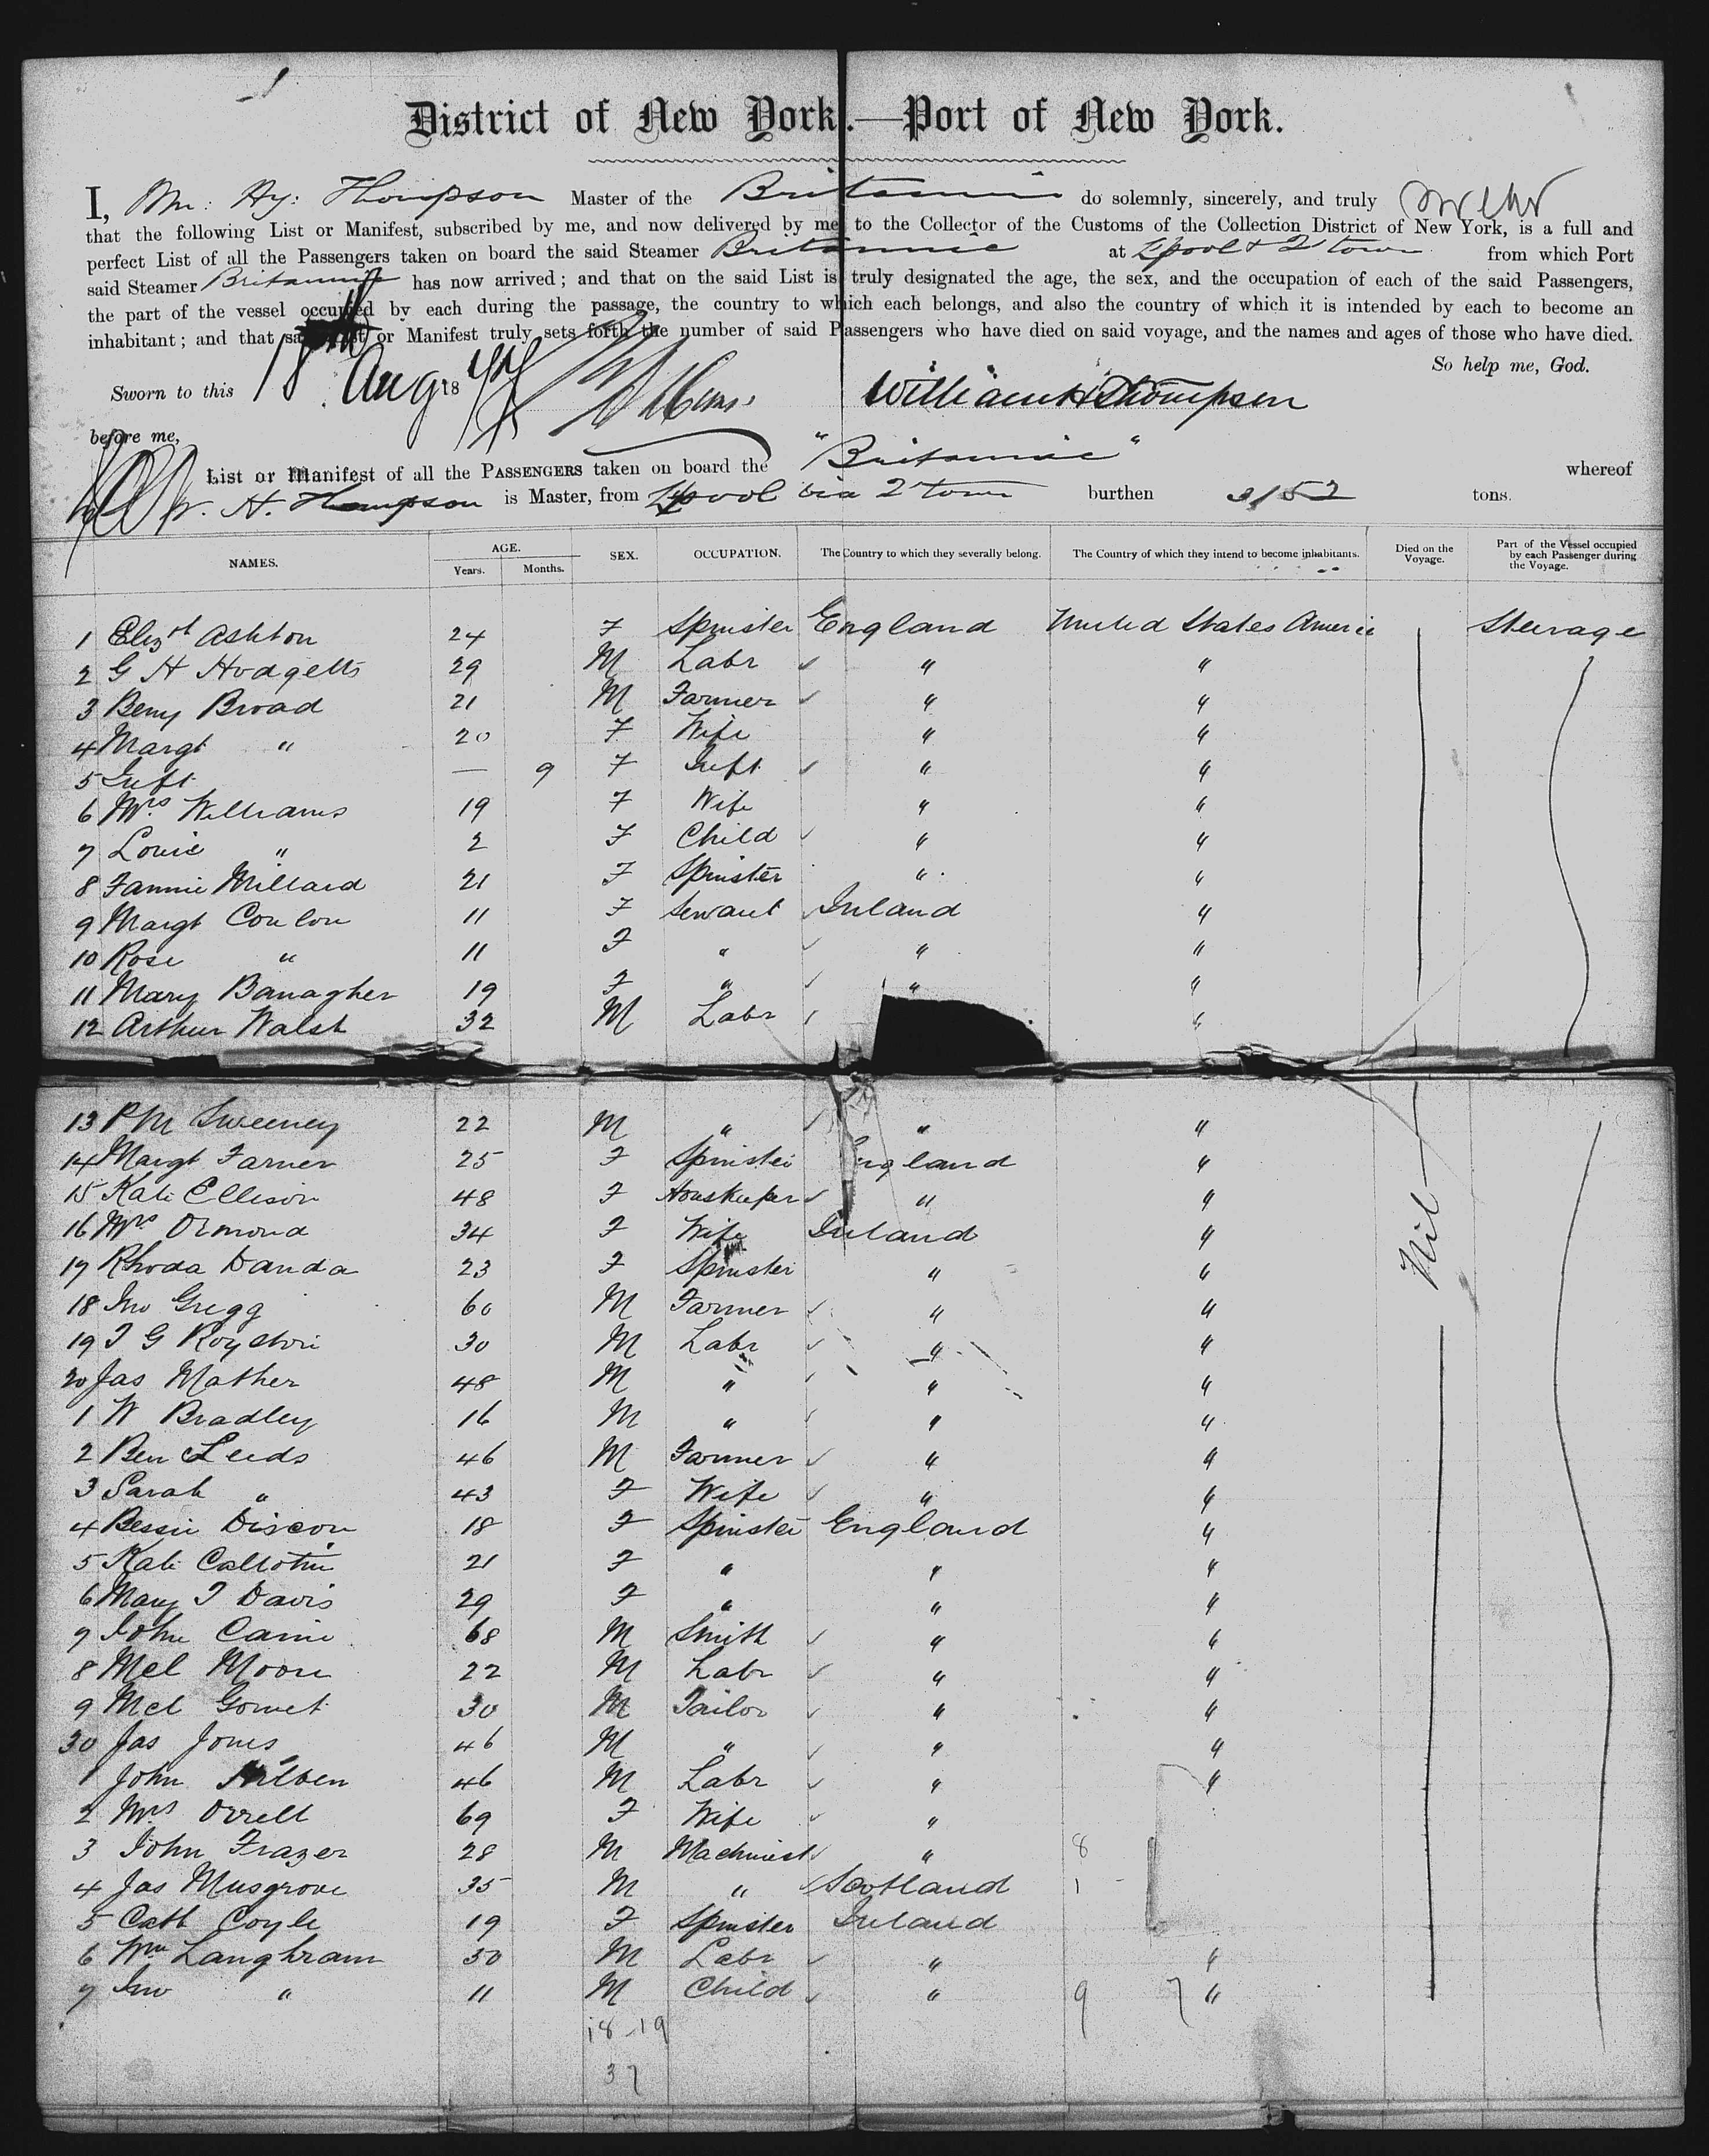 District of New York.—Port of New York.
I, Wm: Hy: Thompson Master of the Britannic do solemnly, sincerely, and truly swear
that the following List or Manifest, subscribed by me, and now delivered by me to the Collector of the Customs of the Collection District of New York, is a full and
perfect List of all the Passengers taken on board the said Steamer Britannic at Lpool & Qtown from which Port
said Steamer Britannic has now arrived; and that on the said List is truly designated the age, the sex, and the occupation of each of the said Passengers,
the part of the vessel occupied by each during the passage, the country to which each belongs, and also the country of which it is intended by each to become an
inhabitant; and that said List or Manifest truly sets forth the number of said Passengers who have died on said voyage, and the names and ages of those who have died.
So help me, God.
Sworn to this 18th Aug 18 William H Thompson
before me,
List or Manifest of all the PASSENGERS taken on board the "Britannic" whereof
W. H. Thompson is Master, from Lpool via Qtown burthen 3152 tons.
NAMES. AGE. Years. Months. SEX. OCCUPATION. The Country to which they severally belong. The Country of which they intend to become inhabitants. Died on the Voyage. Part of the Vessel occupied by each Passenger during the Voyage.
1 Elizth Ashton 24 F Spinster England United States America Steerage
2 G H Hodgetts 29 M Labr " "
3 Benj Broad 21 M Farmer " "
4 Margt " 20 F Wife " "
5 Inft — 9 F Inft " "
6 Mrs Williams 19 F Wife " "
7 Louie " 2 F Child " "
8 Fannie Millard 21 F Spinster " "
9 Margt Conlon 11 F Servant Ireland "
10 Rose " 11 F " " "
11 Mary Banagher 19 F " " "
12 Arthur Walsh 32 M Labr "
13 P M Sweeney 22 M " " "
14 Margt Farner 25 F Spinster England "
15 Kate Ellison 48 F Houskeeper " "
16 Mrs Ormond 34 F Wife Ireland "
17 Rhoda Danda 23 F Spinster " "
18 Jno Gregg 60 M Farmer " "
19 T G Royston 30 M Labr " "
20 Jas Mather 48 M " " "
1 W Bradley 16 M " " "
2 Ben Leeds 46 M Farmer " "
3 Sarah " 43 F Wife " "
4 Bessie Discon 18 F Spinster England "
5 Kate 21 F " " "
6 Mary J Davis 29 F " " "
7 John Caine 68 M Smith " "
8 Mcl Moore 22 M Labr " "
9 Mcl Gomet 30 M Tailor " "
30 Jas Jones 46 M " " "
1 John 46 M Labr " "
2 Mrs Orrell 69 F Wife "
3 John Frazer 28 M Machinist " 8
4 Jas Musgrove 35 M " Scotland 1
5 Cath Coyle 19 F Spinster Ireland
6 Wm Langhram 50 M Labr " "
7 Jno " 11 M Child " 9 7 "
Nil
18-19
37